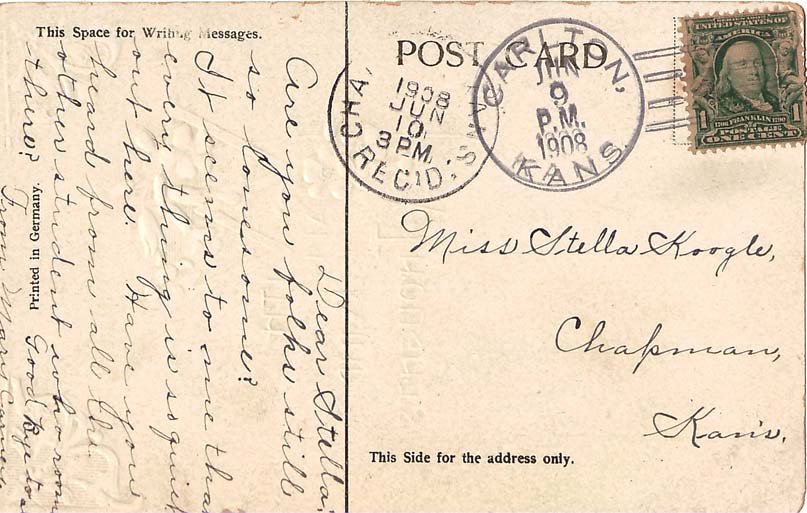 This Space for Writing Messages.
POST CARD
CHA
1908
JUN
10
3 PM.
REC'D.
CARLTON,
JUN
9
P.M.
1908
KANS.
SERIES 1902
UNITED STATES OF
AMERICA
1
1706 FRANKLIN 1790
1
POSTAGE
ONE CENT
Dear Stella:
Are you folks still
so lonesome?
It seems to me tha
every thing is so quiet
out here. Have you
heard from all the
other student who room
there? Good bye to all
From Mary
Printed in Germany.
Miss Stella Koogle,
Chapman,
Kans.
This Side for the address only.